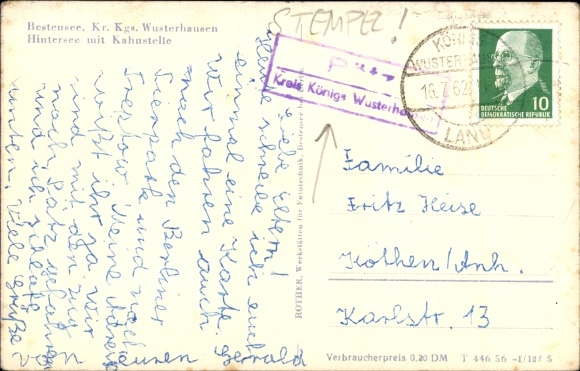 Bestensee, Kr. Kgs. Wusterhausen
Hintersee mit Kahnstelle
STEMPEL!
Kreis Königs Wusterhausen
KÖNIGS
WUSTERHAUSEN
16.7.62
LAND
10
DEUTSCHE
DEMOKRATISCHE REPUBLIK
Liebe Eltern!
Heute schreibe ich euch
einmal eine Karte.
Wir fahren auch
nach den Berliner
Tierpark und nach
Treptow. Meine Adresse
wißt ihr ja. Wir
sind mit den Zug
nach gefahren
und ich schlafe
unten. Viele Grüße
euren Gerrald
ROTHER, Werkstätten für Fototechnik, Bestensee
Familie
Fritz Heise
Köthen/Anh.
Karlstr. 13
Verbraucherpreis 0,20 DM T 446 56 -1/12/ S